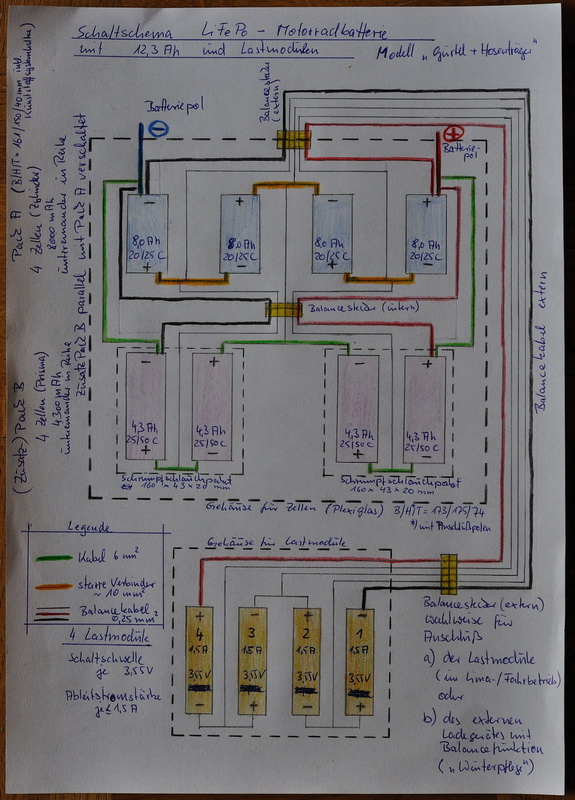 Schaltschema LiFePo - Motorradbatterie
mit 12,3 Ah und Lastmodulen
Modell „Gürtel + Hosenträger"
Pack A (B/H/T = 161/150/40 mm inkl.
4 Zellen (Zylinder)
8000 mAh
untereinander in Reihe
(Zusatz) Pack B
4 Zellen (Prisma)
4.300 mAh
untereinander in Reihe
Zusatz Pack B parallel mit Pack A verschaltet
Batteriepol
−
Balancestecker
(extern)
+
Batterie-
pol
−
8,0 Ah
20/25 C
+
+
8,0 Ah
20/25 C
−
−
8,0 Ah
20/25 C
+
+
8,0 Ah
20/25 C
−
Balancestecker (intern)
Balancekabel extern
−
4,3 Ah
25/50 C
+
+
4,3 Ah
25/50 C
−
−
4,3 Ah
25/50 C
+
+
4,3 Ah
25/50 C
−
Schrumpfschlauchpaket
160 x 43 x 20 mm
Schrumpfschlauchpaket
160 x 43 x 20 mm
Gehäuse für Zellen (Plexiglas) B/H/T = 173/175/74
*) mit Anschlußpolen
Legende
Kabel 6 mm²
starre Verbinder
~ 10 mm²
Balancekabel
0,25 mm²
4 Lastmodule
Schaltschwelle
je 3,55V
Ableitstromstärke
je ≤ 1,5 A
Gehäuse für Lastmodule
+
4
1,5A
3,55V
−
−
3
1,5A
3,55V
+
+
2
1,5A
3,55V
−
−
1
1,5A
3,55V
+
Balancestecker (extern)
wahlweise für
Anschluß
a) der Lastmodule
(im Lima-/Fahrbetrieb)
oder
b) des externen
Ladegerätes mit
Balancefunktion
(„Winterpflege")